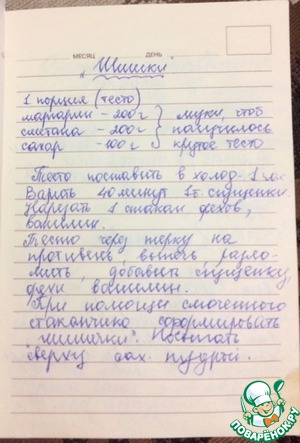 МЕСЯЦ ДЕНЬ
"Шишки"
1 порция (тесто)
маргарин - 200 г } муки, чтоб
сметана - 200 г } получилось
сахар - 100 г } крутое тесто
Тесто поставить в холод - 1 час
Варить 40 минут 1 б. сгущенки.
Нарезать 1 стакан орехов,
ванилин.
Тесто через терку на
противень, выпечь, разло-
мить, добавить сгущенку,
орехи ванилин.
При помощи смоченного
стаканчика сформировать
"шишки". Посыпать
сверху сах. пудрой.
ПОВАРЁНОК.РУ